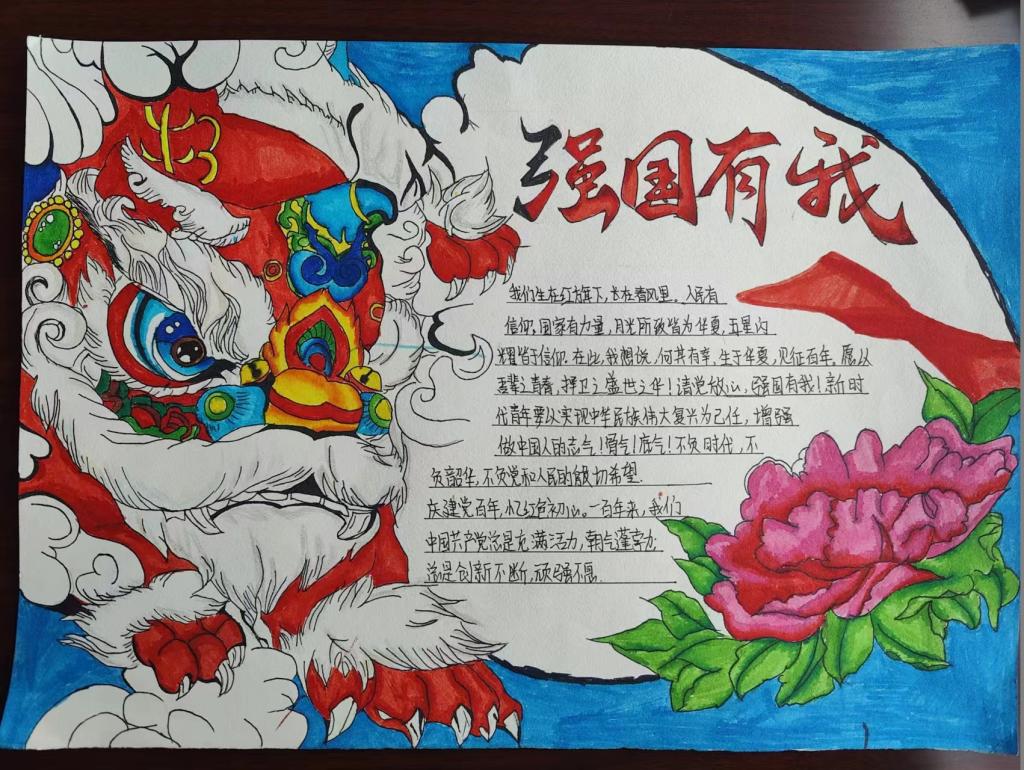 强国有我
我们生在红旗下,长在春风里。人民有
信仰,国家有力量,目光所致皆为华夏,五星闪
耀皆于信仰.在此,我想说,何其有幸,生于华夏,见证百年.愿以
吾辈之青春,捍卫之盛世之华!请党放心,强国有我!新时
代青年要以实现中华民族伟大复兴为己任,增强
做中国人的志气!骨气!底气!不负时代,不
负韶华,不负党和人民的殷切希望.
庆建党百年,忆红色初心。一百年来,我们
中国共产党总是充满活力,朝气蓬勃,
总是创新不断,顽强不屈.